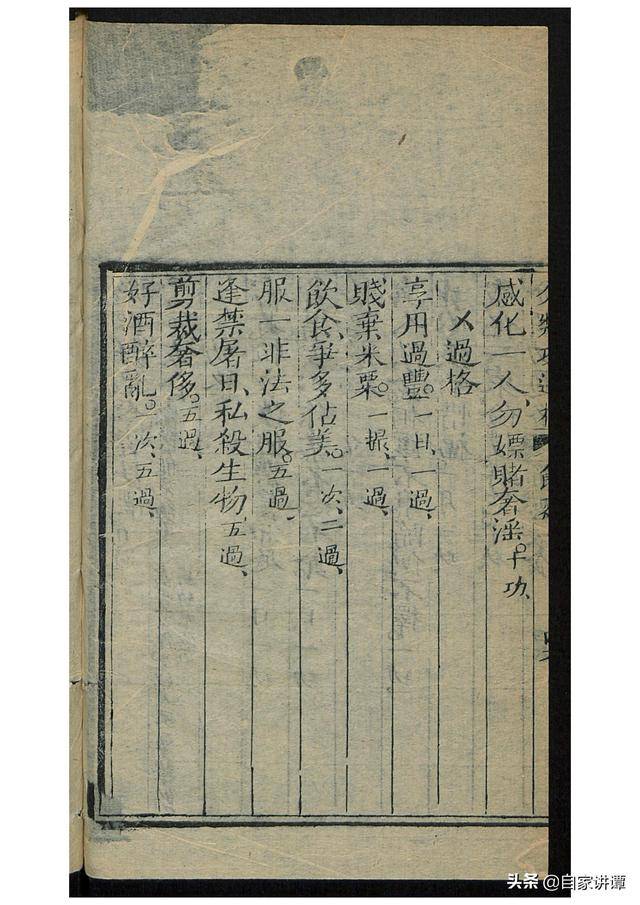 感化一人、勿嫖賭奢淫。十功、
乂過格
享用過豐。一日、一過、
賤棄米粟。一撮、一過、
飲食、爭多佔美。一次、二過、
服一非法之服。五過、
逢禁屠日、私殺生物、五過、
剪裁奢侈。五過、
好酒醉亂。一次、五過、
头条 @自家讲谭